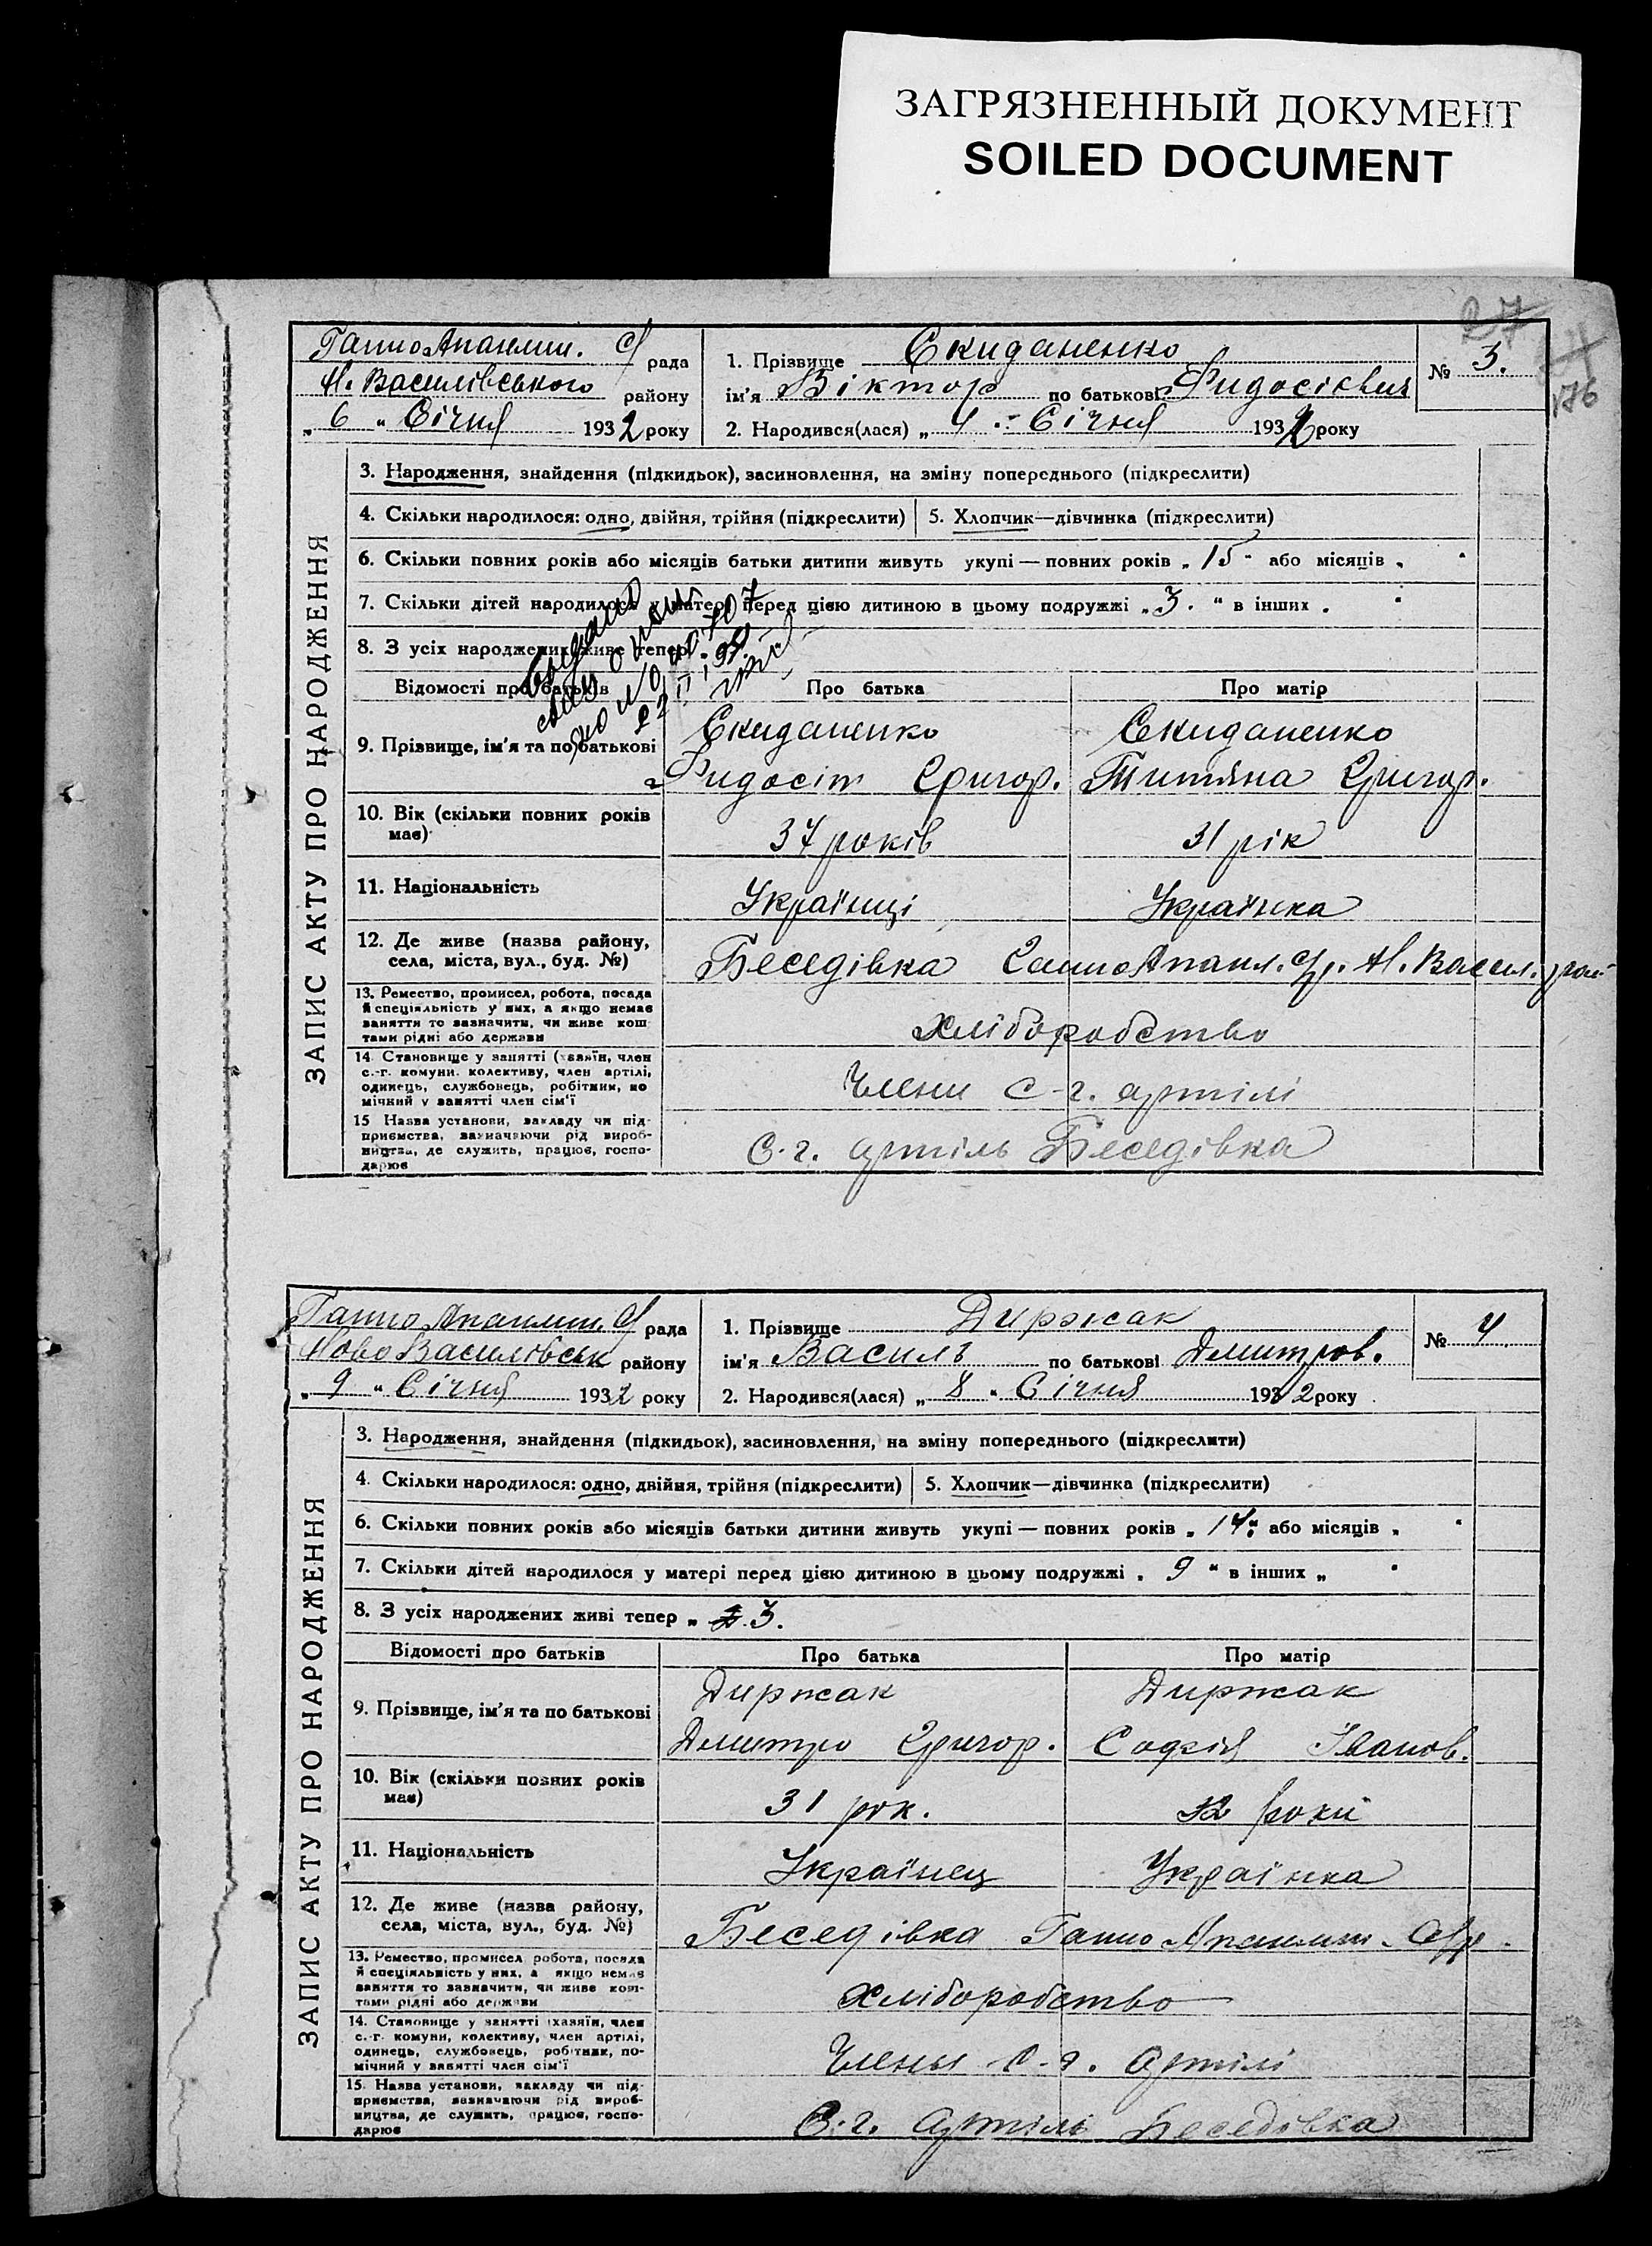 ЗАГРЯЗНЕННЫЙ ДОКУМЕНТ
SOILED DOCUMENT
27
176
ГанноАпаклиш. С/рада
Н. Василівського району
„ 6 “ Січня 1932 року
1. Прізвище Скиданенко
ім'я Віктор по батькові Фидосієвич
2. Народився(лася) „ 4 “ Січня 1932 року
№ 3.
ЗАПИС АКТУ ПРО НАРОДЖЕННЯ
3. Народження, знайдення (підкидьок), засиновлення, на зміну попереднього (підкреслити)
4. Скільки народилося: одно, двійня, трійня (підкреслити)
5. Хлопчик—дівчинка (підкреслити)
6. Скільки повних років або місяців батьки дитини живуть укупі — повних років „ 15 “ або місяців „
7. Скільки дітей народилося у матері перед цією дитиною в цьому подружжі „ 3. “ в інших „
8. З усіх народжених живі тепер
Відомості про батьків
Про батька
Про матір
9. Прізвище, ім'я та по батькові
Скиданенко
Фидосій Григор.
Скиданенко
Титяна Григор.
10. Вік (скільки повних років має)
37 років
31 рік
11. Національність
Українці
Українка
12. Де живе (назва району, села, міста, вул., буд. №)
Беседівка ГанноАпакл. С/р. Н. Васил. рай
13. Ремество, промисел, робота, посада й спеціяльність у них, а якщо немає заняття то зазначити, чи живе коштами рідні або держави
Хліборобство
14. Становище у занятті (хазяїн, член с.-г. комуни, колективу, член артілі, одинець, службовець, робітник, помічний у занятті член сім'ї
Члени с-г. артілі
15 Назва установи, закладу чи підприємства, зазначаючи рід виробництва, де служить, працює, господарює
С.-г. артіль Беседівка
Ганно Апаклиш. С/рада
Ново Василівськ району
„ 9 “ Січня 1932 року
1. Прізвище Диржак
ім'я Василь по батькові Дмитров.
2. Народився(лася) „ 8 “ Січня 1932 року
№ 4
ЗАПИС АКТУ ПРО НАРОДЖЕННЯ
3. Народження, знайдення (підкидьок), засиновлення, на зміну попереднього (підкреслити)
4. Скільки народилося: одно, двійня, трійня (підкреслити)
5. Хлопчик—дівчинка (підкреслити)
6. Скільки повних років або місяців батьки дитини живуть укупі — повних років „ 14 “ або місяців „
7. Скільки дітей народилося у матері перед цією дитиною в цьому подружжі „ 9 “ в інших „
8. З усіх народжених живі тепер „ 3.
Відомості про батьків
Про батька
Про матір
9. Прізвище, ім'я та по батькові
Диржак
Дмитро Григор.
Диржак
Софія Іванов.
10. Вік (скільки повних років має)
31 рок.
32 роки
11. Національність
Українец
Українка
12. Де живе (назва району, села, міста, вул., буд. №)
Беседівка Ганно Апаклиш. С/р.
13. Ремество, промисел робота, посада й спеціяльність у них, а якщо немає заняття то зазначити, чи живе коштами рідні або держави
Хліборобство
14. Становище у занятті (хазяїн, член с.-г. комуни, колективу, член артілі, одинець, службовець, робітник, помічний у занятті член сім'ї
Члены с-г. артілі
15. Назва установи, закладу чи підприємства, зазначаючи рід виробництва, де служить, працює, господарює
С.-г. артіль Беседівка